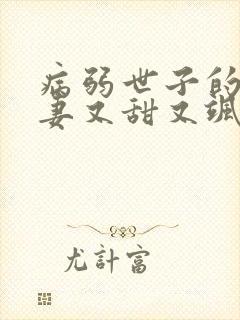 病弱世子的
妻又甜又飒
尤計富